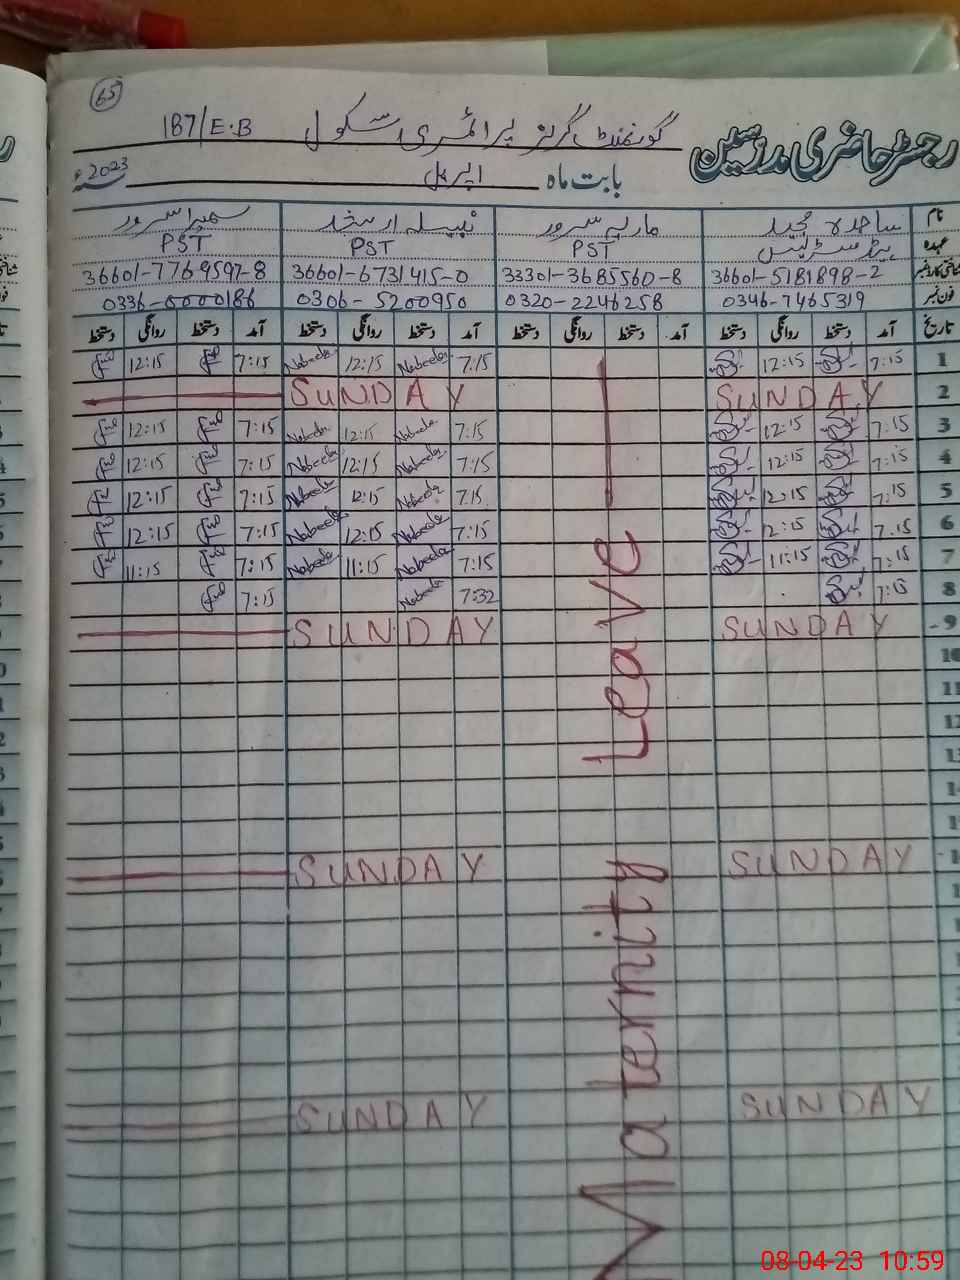 65
گورنمنٹ گرلز پرائمری سکول 187/E.B
رجسٹر حاضری مدرسین
بابت ماہ اپریل 2023ء
نام ساجدہ مجید ماریہ سرور نبیلہ ارشد سمیرا سرور
عہدہ ہیڈ مسٹریس PST PST PST
شناختی کارڈ نمبر 36601-5181898-2 33301-3685560-8 36601-6731415-0 36601-7769597-8
فون نمبر 0346-7465319 0320-2246258 0306-5200950 0336-0000186
تاریخ آمد دستخط روانگی دستخط آمد دستخط روانگی دستخط آمد دستخط روانگی دستخط آمد دستخط روانگی دستخط
1 7:15 12:15 7:15 Nabeela 12:15 Nabeela 7:15 12:15
2 SUNDAY SUNDAY
3 7:15 12:15 7:15 Nabeela 12:15 Nabeela 7:15 12:15
4 7:15 12:15 7:15 Nabeela 12:15 Nabeela 7:15 12:15
5 7:15 12:15 7:15 Nabeela 12:15 Nabeela 7:15 12:15
6 7:15 12:15 7:15 Nabeela 12:15 Nabeela 7:15 12:15
7 7:15 11:15 7:15 Nabeela 11:15 Nabeela 7:15 11:15
8 7:15 7:32 Nabeela 7:15
9 SUNDAY SUNDAY
10
11
12
13
SUNDAY SUNDAY
SUNDAY SUNDAY
Maternity Leave
08-04-23 10:59